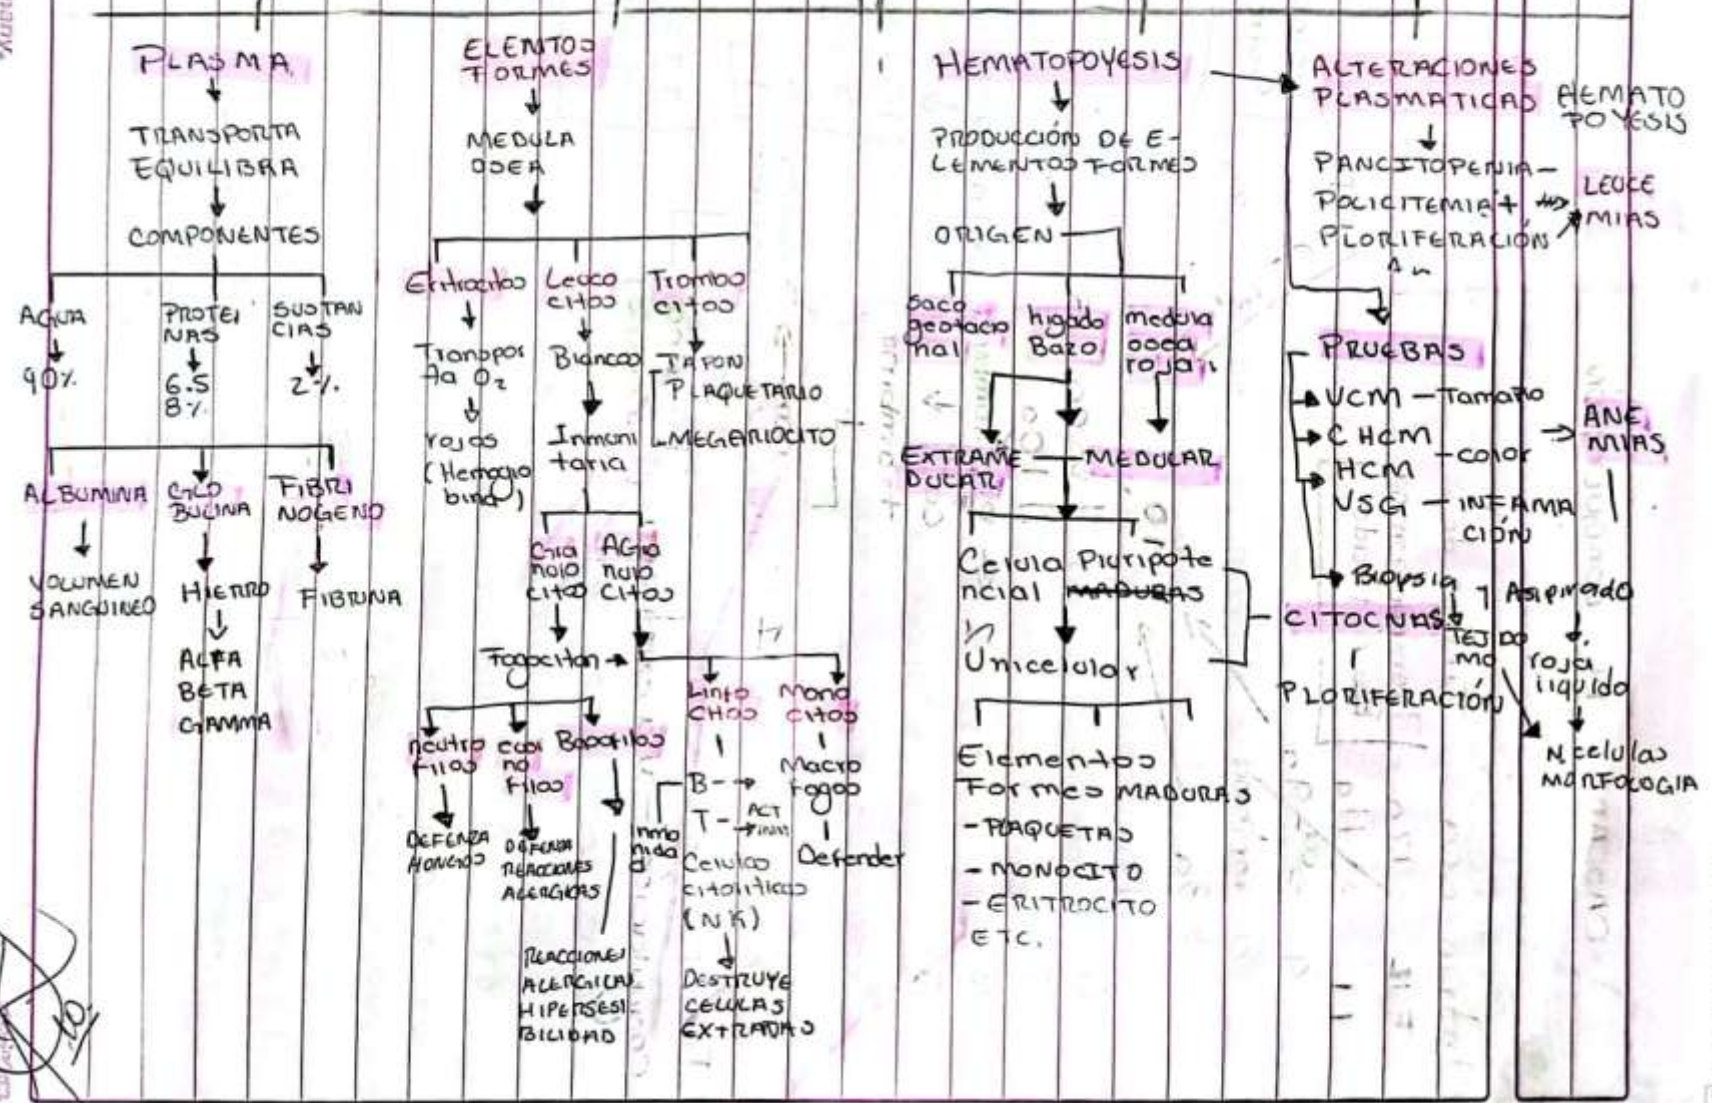 PLASMA
TRANSPORTA
EQUILIBRA
COMPONENTES
AGUA
90%
PROTEI
NAS
6.5
8%
SUSTAN
CIAS
2%
ALBUMINA
VOLUMEN
SANGUINEO
GLO
BULINA
HIERRO
ALFA
BETA
GAMMA
FIBRI
NOGENO
FIBRINA
ELEMTOS
FORMES
MEDULA
OSEA
Eritrocitos
Transpor
ta O₂
rojos
(Hemoglo
bina)
Leuco
citos
Blancos
Inmuni
taria
Trombo
citos
TAPON
PLAQUETARIO
MEGARIOCITO
Gra
nulo
citos
AGra
nulo
Citos
Fagocitan
neutro
filos
DEFENZA
HONGOS
eosi
no
filos
DEFENSA
REACCIONES
ALERGICAS
Basofilos
REACCIONES
ALERGICAS
HIPERSESI
BILIDAD
Linfo
citos
B-
T-
ACT
INM
Inmu
nida
d
Celulas
citoliticas
(NK)
DESTRUYE
CELULAS
EXTRAÑAS
Mono
citos
Macro
fagos
Defender
HEMATOPOYESIS
PRODUCCIÓN DE E-
LEMENTOS FORMES
ORIGEN
saco
gestacio
nal
higado
Bazo
medula
osea
roja
EXTRAME
DULAR
MEDULAR
Celula Pluripote
ncial MADURAS
Unicelular
Elementos
Formes MADURAS
-PLAQUETAS
-MONOCITO
-ERITROCITO
ETC.
CITOCNAS
PLORIFERACIÓN
ALTERACIONES
PLASMATICAS
HEMATO
POYESIS
PANCITOPENIA-
POLICITEMIA+
PLORIFERACIÓN
LEUCE
MIAS
PRUEBAS
VCM - Tamaño
CHCM
HCM
-color
VSG - INFAMA
CIÓN
ANE
MIAS
Biopsia
TEJIDO
MO
Aspirado
roja
liquido
N celulas
MORFOLOGIA
10